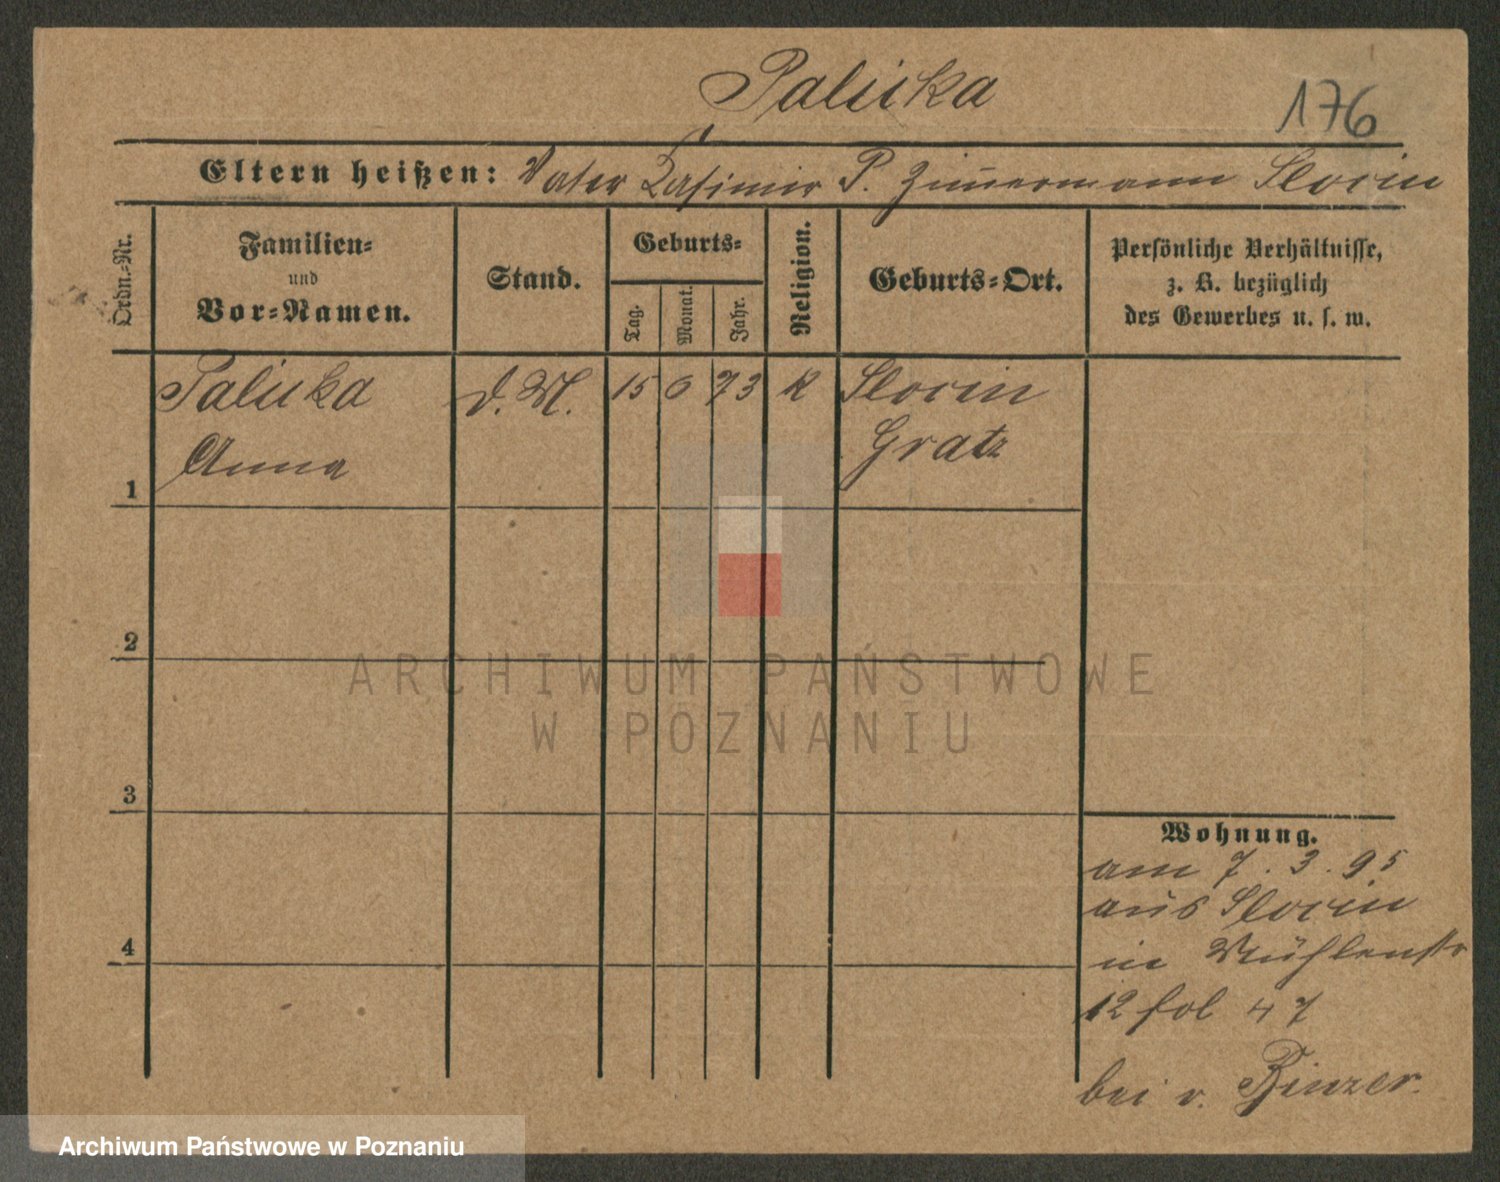 Palicka
176
Eltern heißen: Vater Kasimir P. Zimmermann Slocin
Ordn.-Nr.
Familien-
und
Vor-Namen.
Stand.
Geburts-
Tag.
Monat.
Jahr.
Religion.
Geburts-Ort.
Persönliche Verhältnisse,
z. B. bezüglich
des Gewerbes u. s. w.
1 Palicka d. M. 15 6 73 K Slocin
Anna Gratz
2
3
4
Wohnung.
am 7. 3. 95
aus Slocin
in Mühlenstr
12 fol 47
bei v. Binzer.
ARCHIWUM PAŃSTWOWE
W POZNANIU
Archiwum Państwowe w Poznaniu